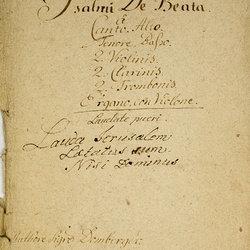 Psalmi De Beata.
à
Canto. Alto.
Tenore. Basso.
2. Violinis.
2. Clarinis.
2. Trombonis.
Organo, con Violone.
Laudate pueri.
Lauda Jerusalem
Lætatus sum
Nisi Dominus
Authore Sigre Domberger